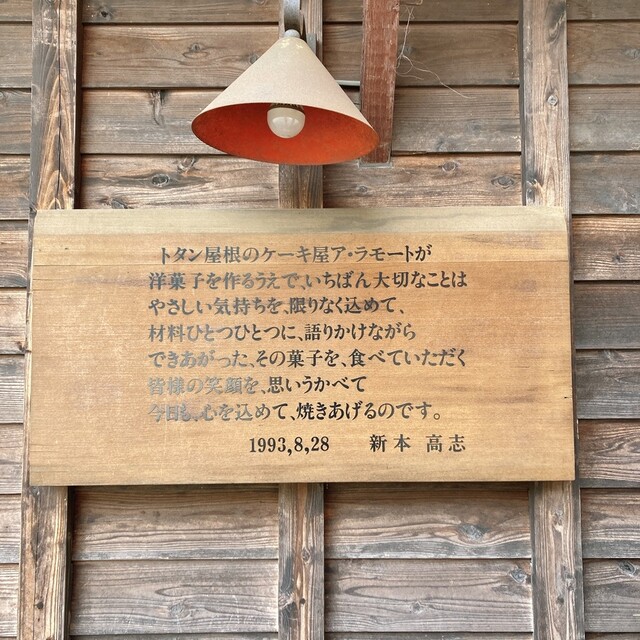 トタン屋根のケーキ屋ア・ラモートが
洋菓子を作るうえで、いちばん大切なことは
やさしい気持ちを、限りなく込めて、
材料ひとつひとつに、語りかけながら
できあがった、その菓子を、食べていただく
皆様の笑顔を、思いうかべて
今日も、心を込めて、焼きあげるのです。
1993,8,28 新本 高志